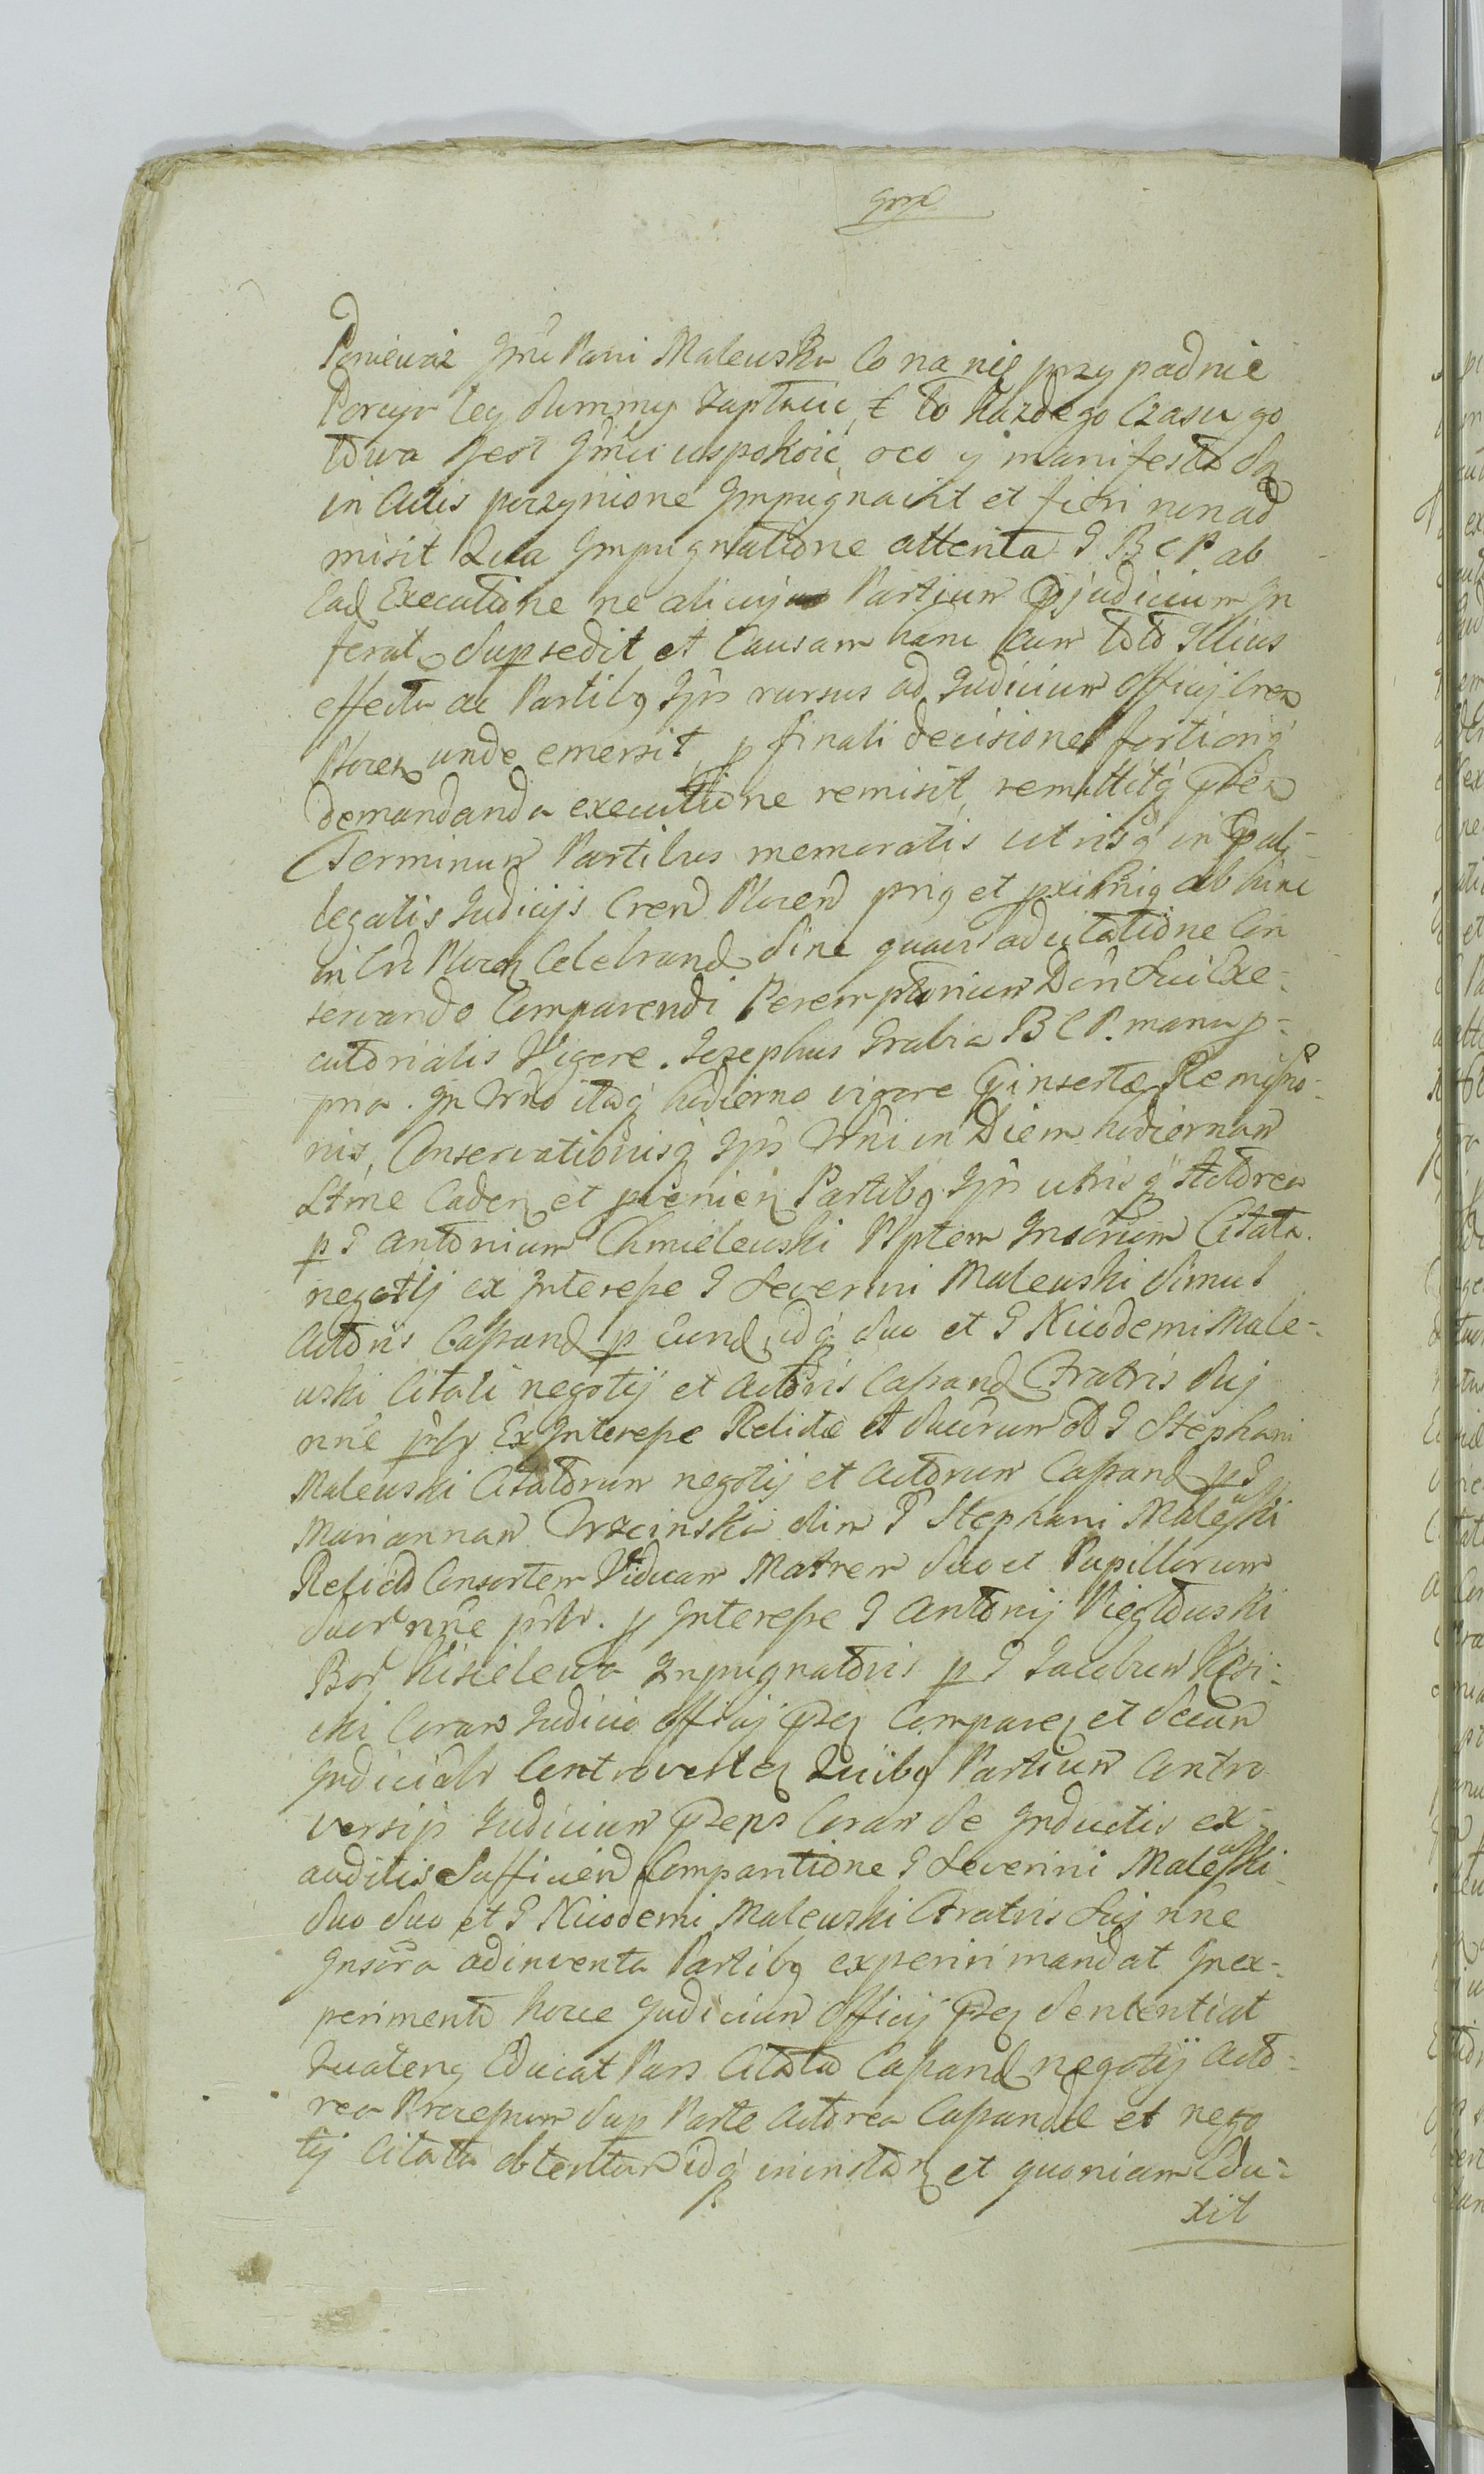 Ponieważ Jmć Pani Malewska co na nię przypadnie
Porcya tey summy zapłacić, to każdego czasu go
towa jest Jmci uspokoić, oco y manifesta są
in Actis poczynione Impugnavit et fieri non ad
misit Qua Impugnatione attenta G B C P ab
Ead Executione ne alicujus Partium pjudicium In
ferat supsedit et Causam hanc cum toto Illius
effectu ac Partibq Ijis rursus ad Judicium Officij Cren
Plocen unde emersit, p finali decisione fortioriq
demandanda executione remisit, remittitq
Terminum Partibus memoratis utrisq in
legatis Judicijs Cren Plocen prig et pximig abhinc
in Cro Plocen Celebrand sine quavis adcitatione Con
servando Comparendi Peremptorium Dein sui Exe-
cutorialis Vigore. Josephus Grabia B C P. manu p-
pria. In Trno itaq hodierno vigore insertæ Remisio-
nis, Conservationisq Ijis Trni in Diem hodiernam
Ltme Caden et pvenien Partibq Ijis utrisq Actorea
p G Antonium Chmielewski Pptem Inscrium Citata
negotij ex Interesse G Severini Malewski simul
Actoris Capand p eund, idq suo et G Nicodemi Male-
wski Citati negotij et Actoris Capand Fratris sui
nne Ex Interesse Relictæ et succrum od G Stephani
Malewski Citatorum negotij et Actorum Capand p G
Mariannam Trzcinska olim G Stephani Malewski
Relictã Consortem Viduam Matrem suo et Pupillorum
suor nne p Interesse G Antonij Piegłowski
Bor Kisielewo Inpugnatoris p G Jacobum Kęsi-
cki Coram Judicio Officij Comparen et secum
Judicialr Controverten Quibq Partium Contro
versijs Judicium Coram se Inductis ex-
auditis Sufficien Compartione G Severini Malewski
suo suo et G Nicodemi Malewski Fratris sui nne
Inscra adinventa Partibq experiri mandat In ex-
perimento hocce Judicium Officij Sententiat
Quateng Educat Pars Citata Capand negotij Acto-
rea Processum sup Parte Actorea Capande et nego
tij Citata obtentum idq in instan et quoniam Edu-
xit